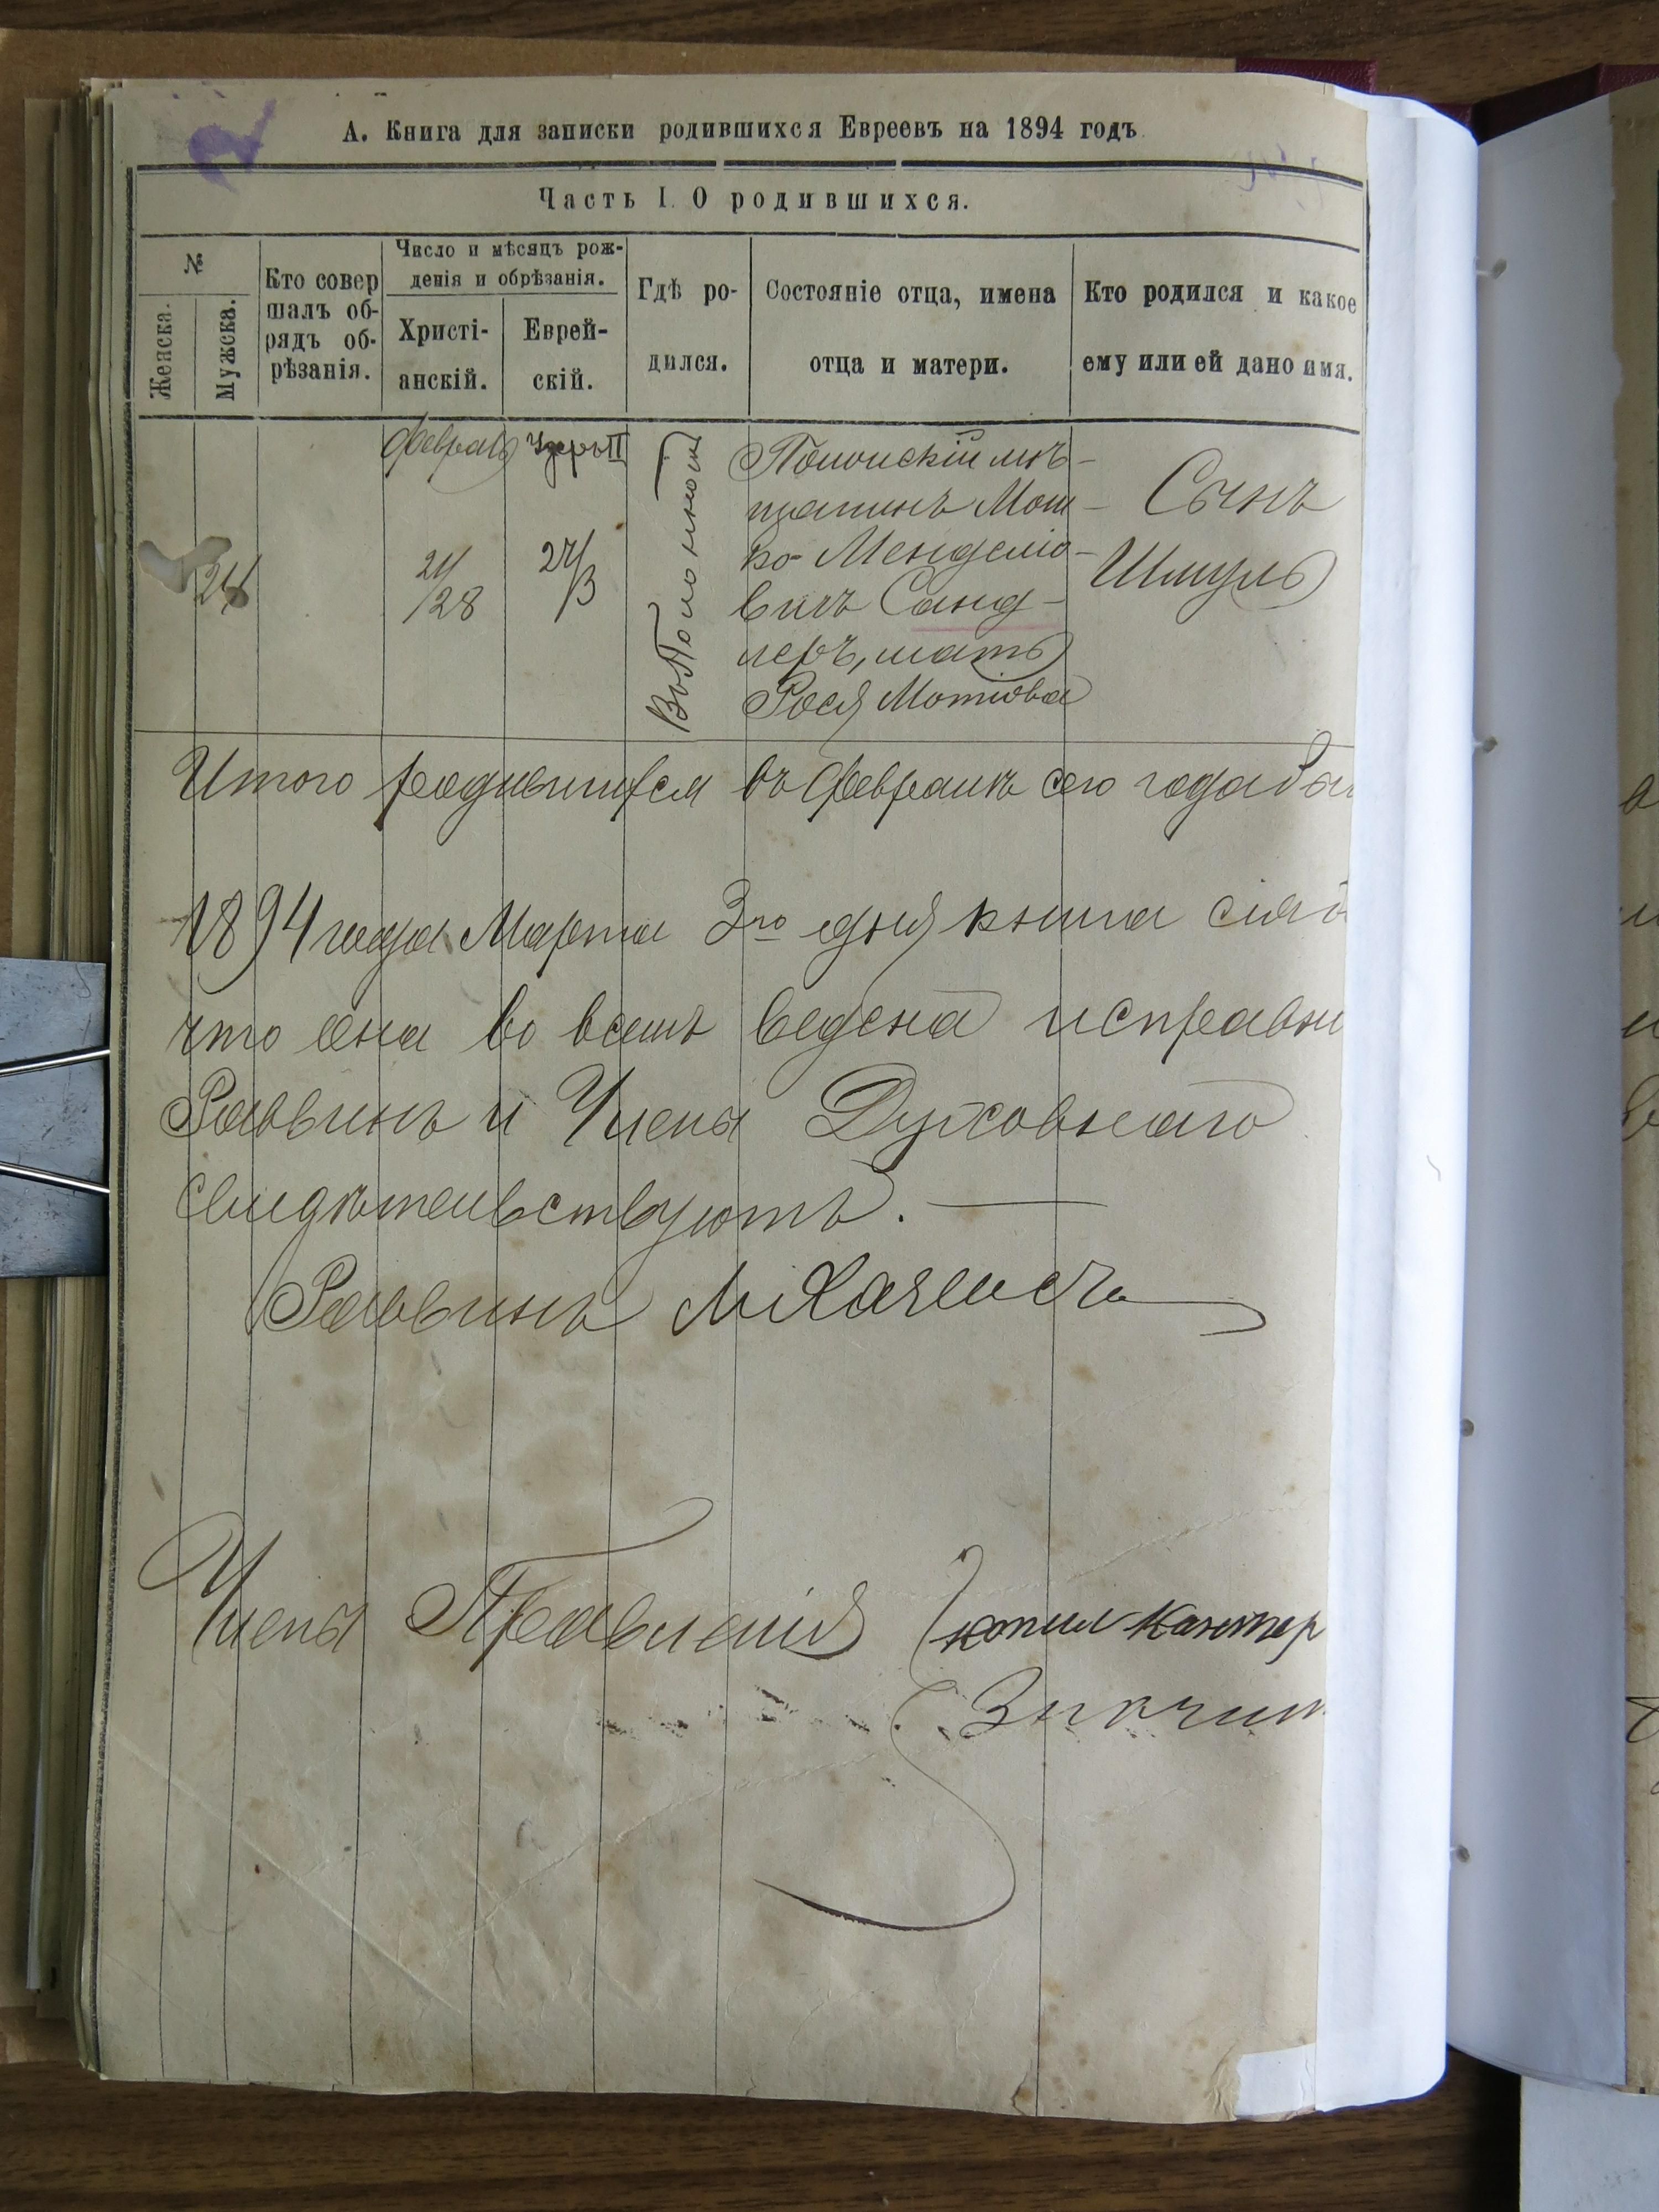 А. Книга для записки родившихся Евреевъ на 1894 годъ
Часть I. О родившихся.
№
Женска.
Мужска.
Кто совер
шалъ об-
рядъ об-
рѣзанія.
Число и мѣсяцъ рож-
денія и обрѣзанія.
Христі-
анскій.
Еврей-
скій.
Гдѣ ро-
дился.
Состояніе отца, имена
отца и матери.
Кто родился и какое
ему или ей дано имя.
Февраль
II
21/28
27/3
Въ
мѣ-
щанинъ Мош-
ко Менделіо-
вичъ Санд-
леръ, мать
Рося Мотіова
Сынъ
Шмуль
Итого родившихся въ Февралѣ сего года
1894 года Марта 3го дня книга сія
что она во всемъ ведена исправн
Раввинъ и Члены Духовнаго
свидѣтельствуютъ. —
Раввинъ
Члены Правленія Кантер